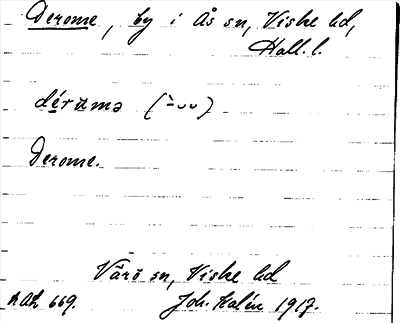 Derome, by i Ås sn, Viske hd,
Hall. l.
dérumə (⏑̀⏑⏑)
Derome.
Värö sn, Viske hd
669. Joh. Kalén 1917.